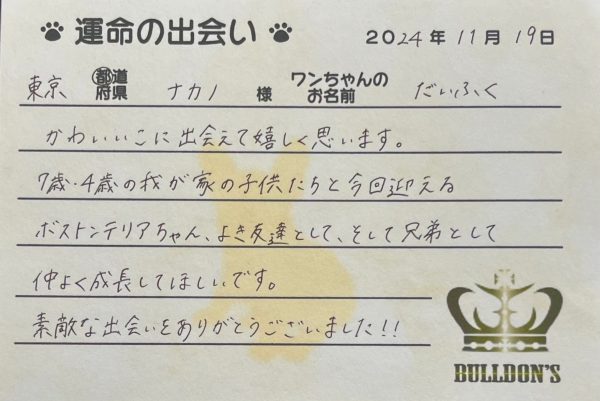 運命の出会い 2024年 11月 19日
東京 都道府県 ナカノ 様 ワンちゃんのお名前 だいふく
かわいいこに出会えて嬉しく思います。
7歳・4歳の我が家の子供たちと今回迎える
ボストンテリアちゃん、よき友達として、そして兄弟として
仲よく成長してほしいです。
素敵な出会いをありがとうございました!!
BULLDON'S